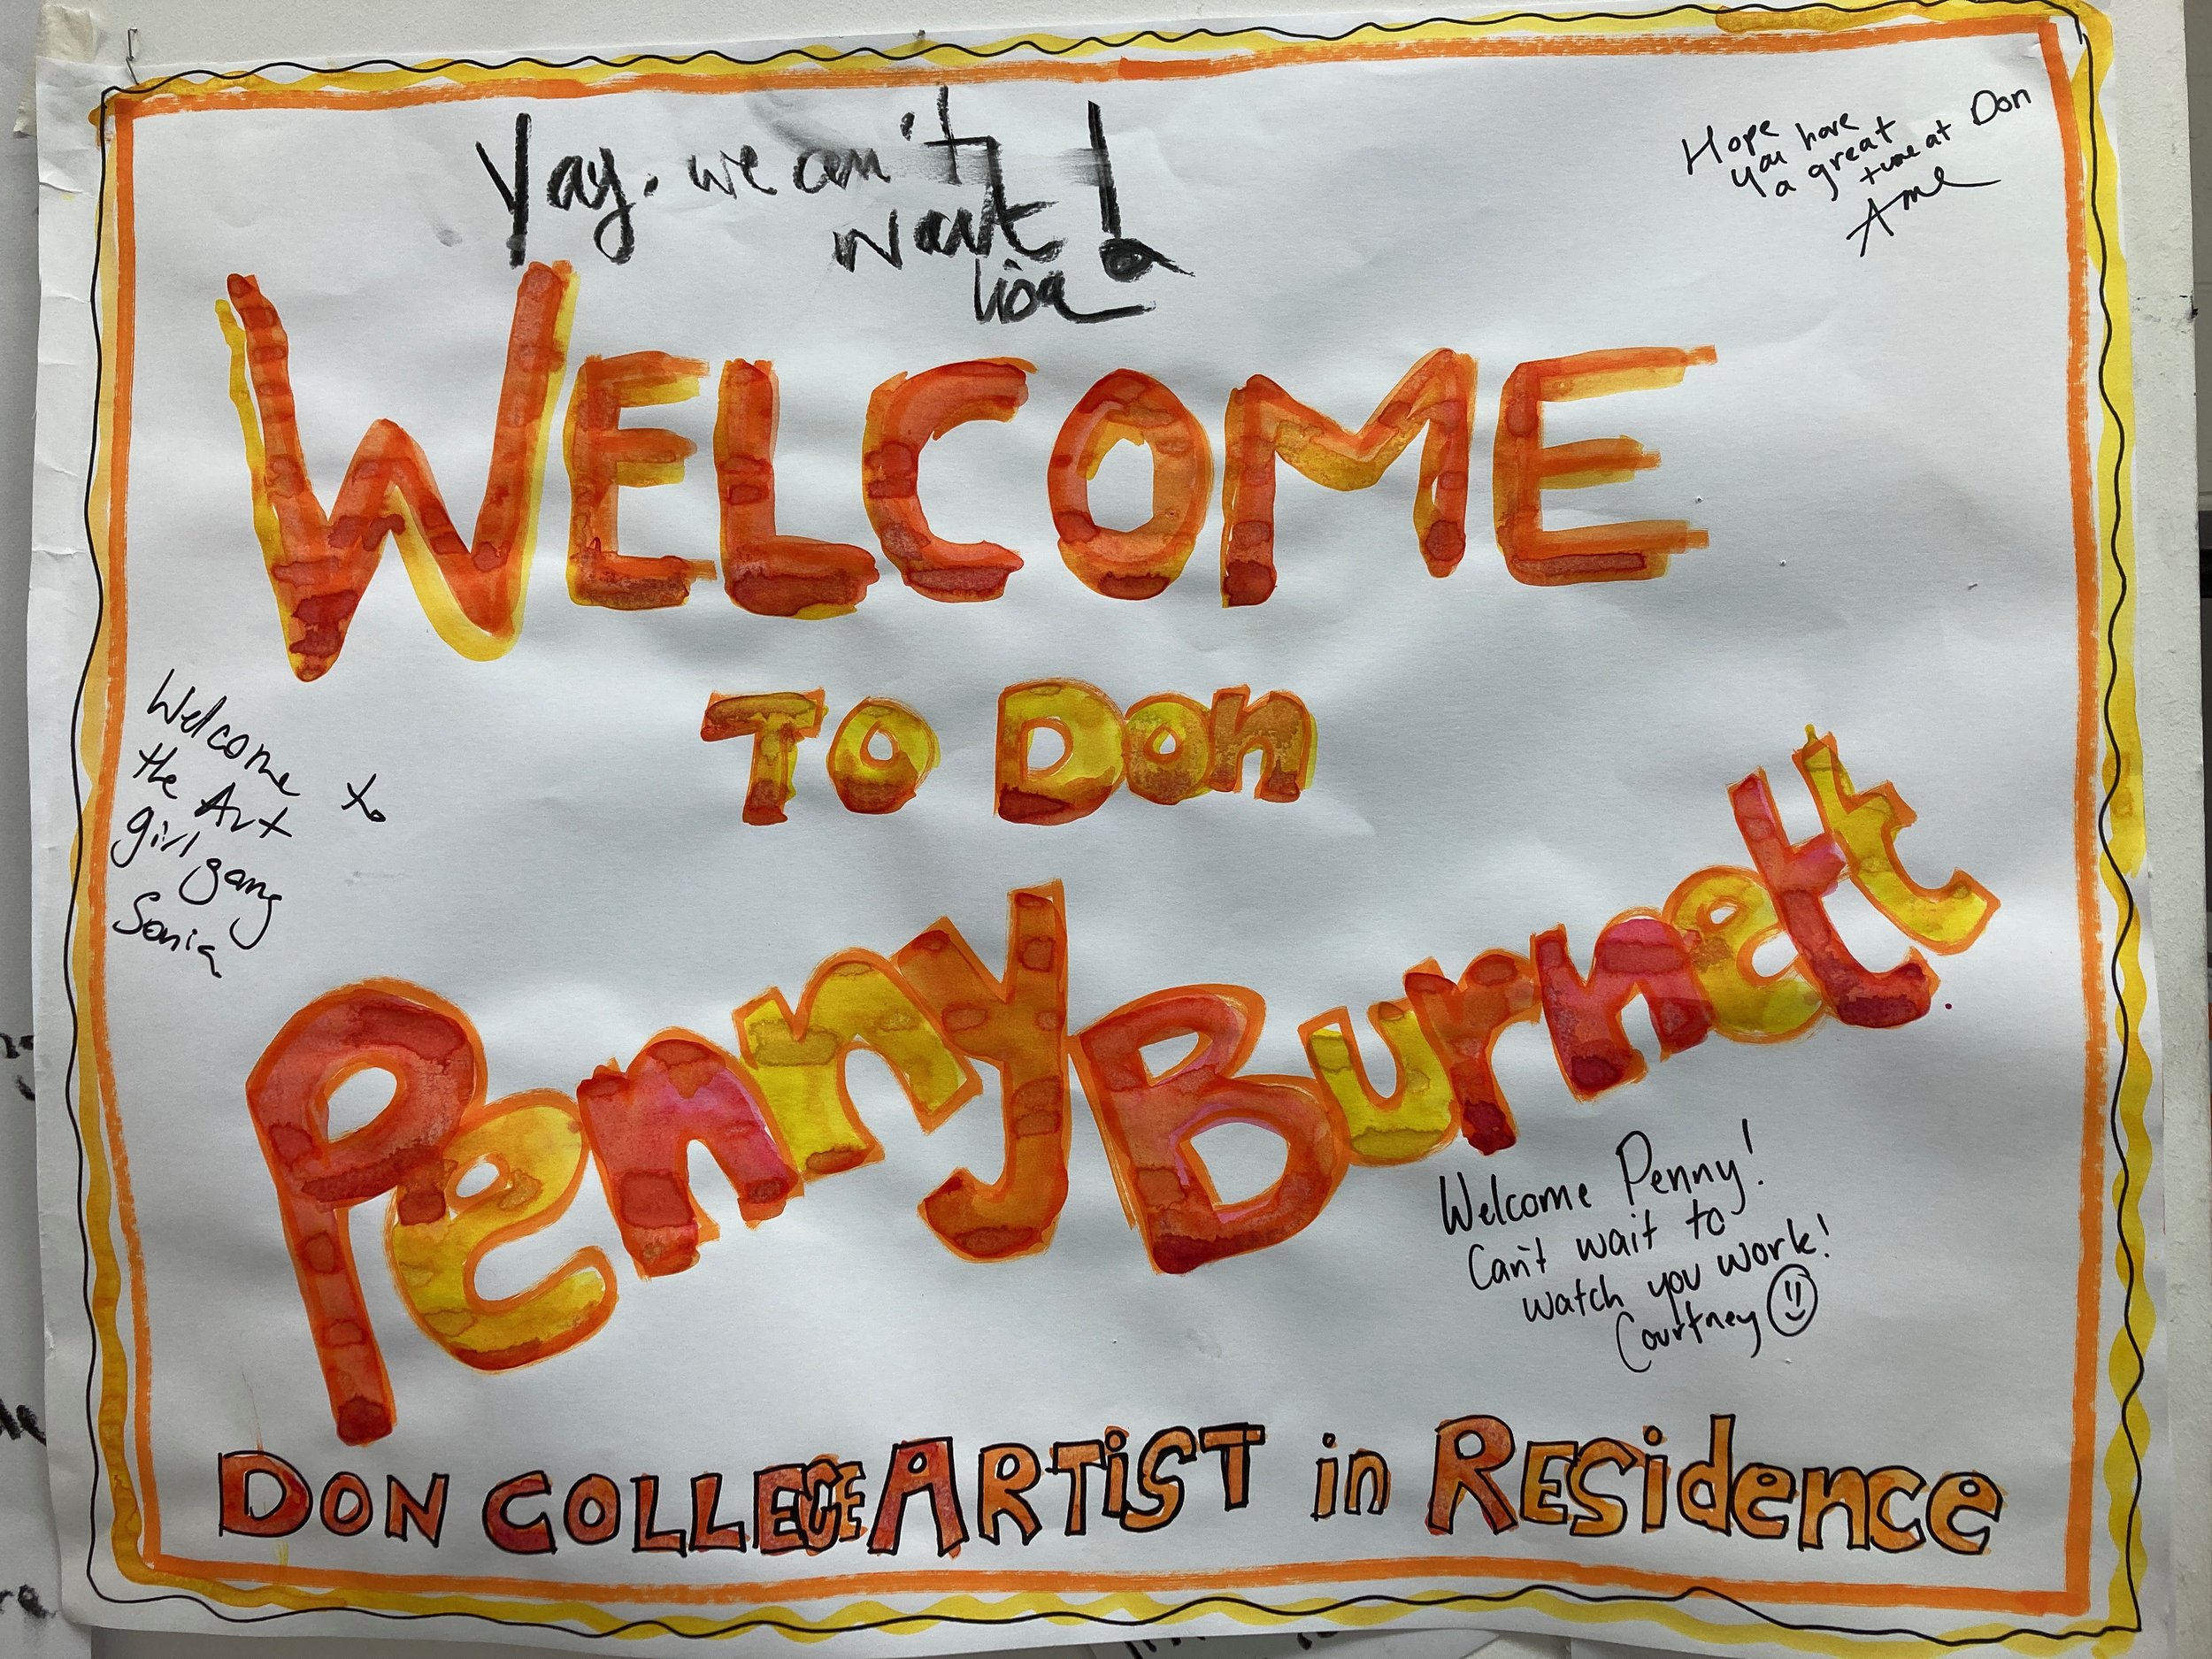 Yay. we can't
wait!
Lisa
Hope
you have
a great
time at Don
WELCOME
TO Don
Welcome
the Art
girl gang
Sonia
xo
Penny Burnett
Welcome Penny!
Can't wait to
watch you work!
Courtney
DON COLLEGE ARTiST in RESidence